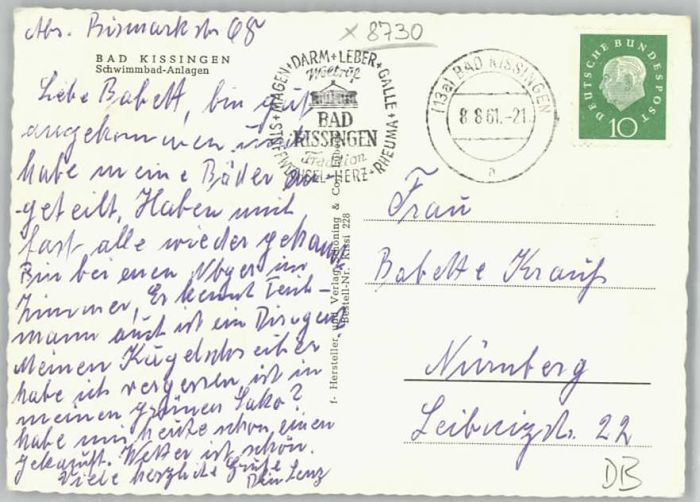 Abs. Bismarkstr 68
BAD KISSINGEN
Schwimmbad-Anlagen
Liebe Babett, bin gut
angekommen und
habe meine Bäder
geteilt, Haben mich
fast alle wieder gekannt
Bin bei einen Nbger im
Zimmer, Er kennt
mann auch ist ein
Meinen Kugelschreiber
habe ich vergessen, ist in
meinen grünen Sako?
habe mir heute schon einen
gekauft. Wetter ist schön.
Viele herzliche Grüße
Dein Lenz
x 8730
MAGEN+DARM+LEBER+GALLE+RHEUMA+HERZ
Weltruf
BAD
KISSINGEN
Tradition
(13a) BAD KISSINGEN
8 8 61.-21
a
DEUTSCHE BUNDESPOST
10
Hersteller und Verlag Schöning & Co
Bestell-Nr. Kissi 228
Frau
Babette Krauß
Nürnberg
Leibnizstr. 22
DB